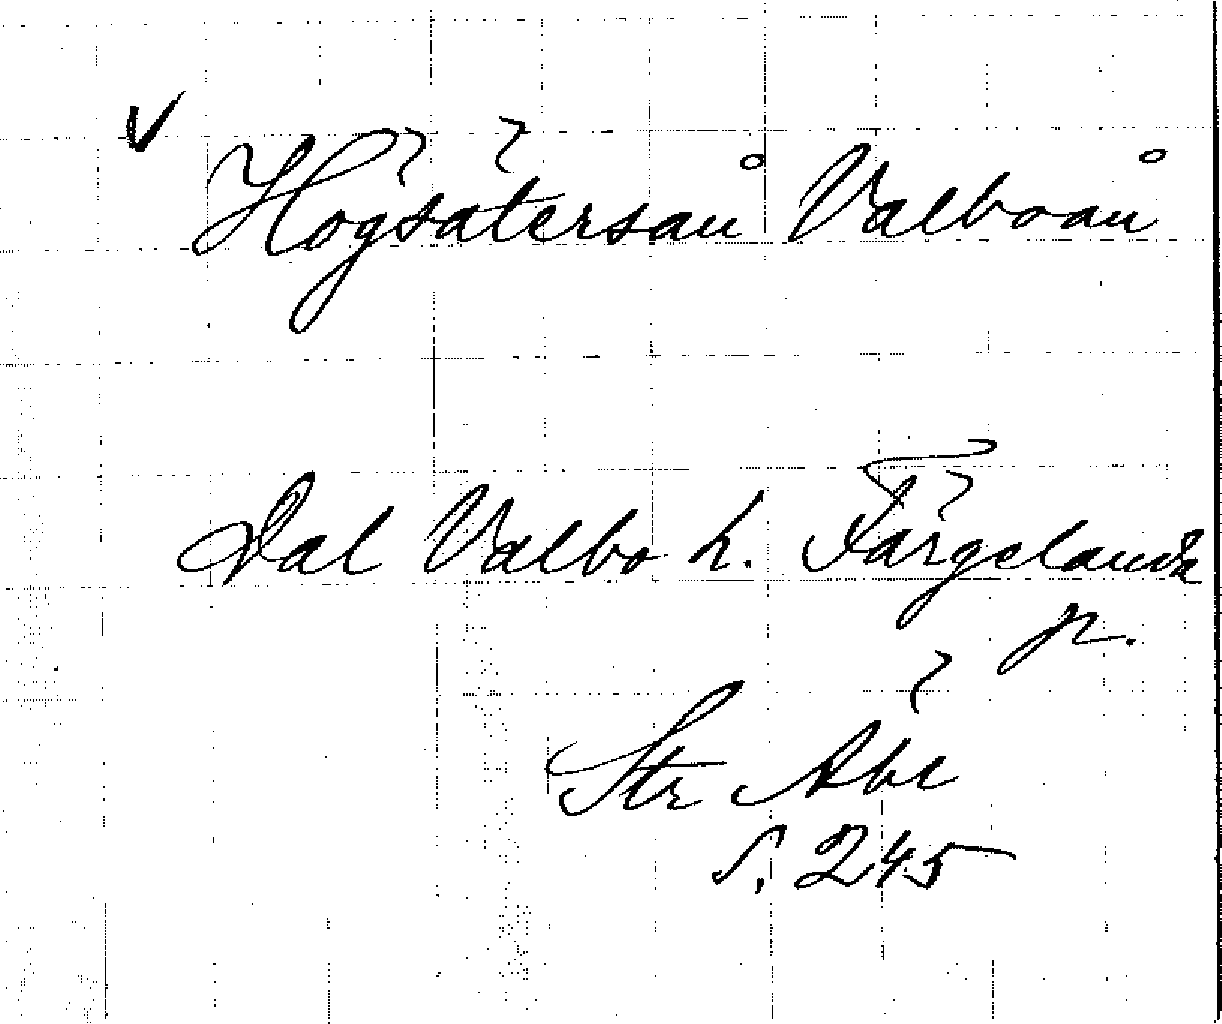 V Högsätersån Valboån
Dal Valbo h. Färgelanda
p.
Str Äbc
S. 245